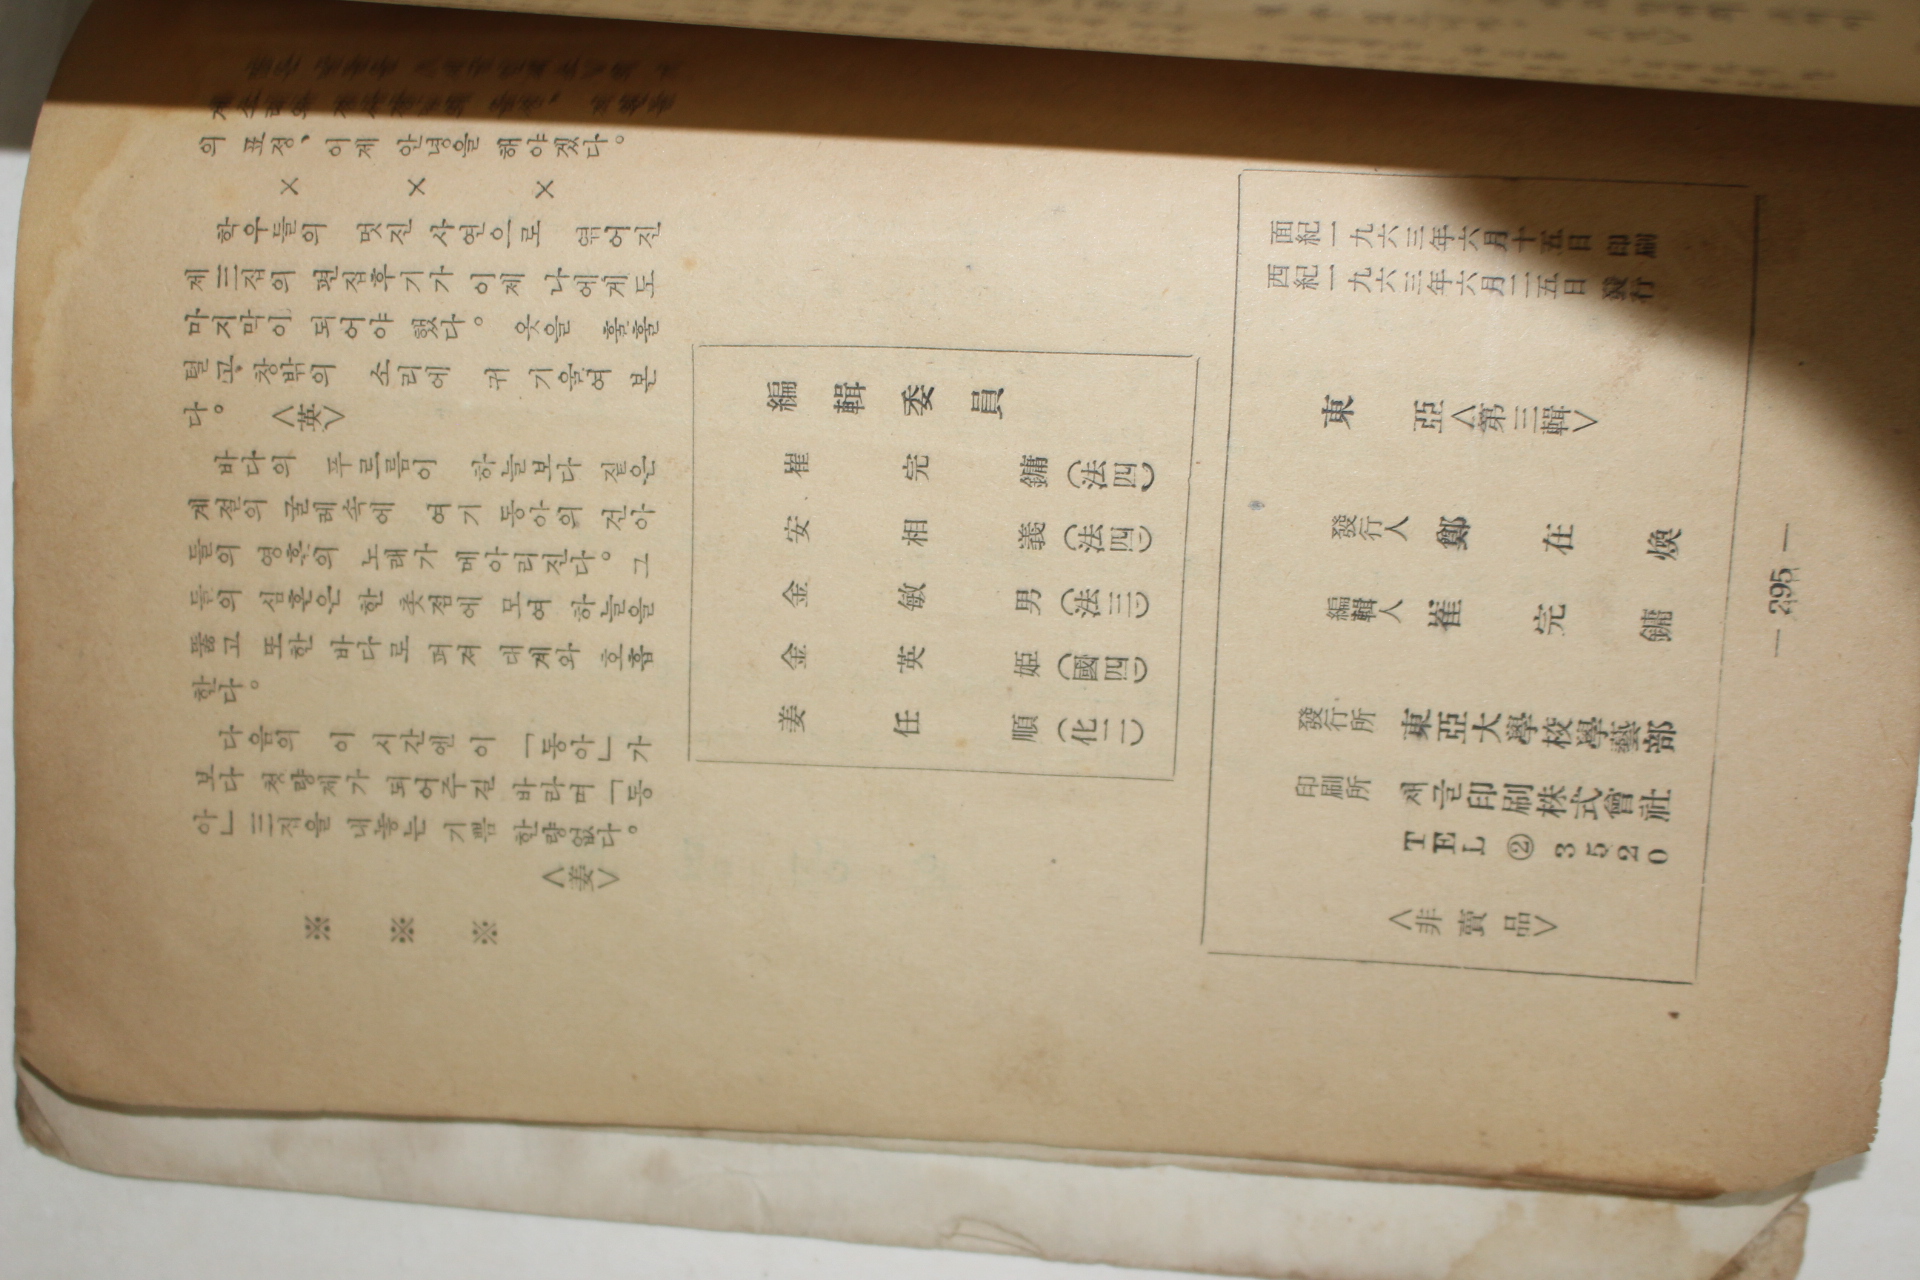 의 표정、이제 안녕을 해야겠다。
× × ×
학우들의 멋진 사연으로 엮어진
제三집의 편집후기가 이제 나에게도
마지막이 되어야 했다。 옷을 훌훌
털고 창밖의 소리에 귀 기울여 본
다。 <英>
바다의 푸르름이 하늘보다 짙은
계절의 굴레속에 여기 동아의 건아
들의 영혼의 노래가 메아리진다。그
들의 심혼은 한 촛점에 모여 하늘을
뚫고 또한 바다로 퍼져 대계와 호흡
한다。
다음의 이 시간엔 이 「동아」가
보다 청량제가 되어주길 바라며 「동
아」 三집을 내놓는 기쁨 한량없다。
<姜>
※ ※ ※
編輯委員
崔完鏞(法四)
安相義(法四)
金敏男(法三)
金英姬(國四)
姜任順(化二)
面紀一九六三年六月十五日 印刷
西紀一九六三年六月二五日 發行
東亞<第三輯>
發行人 鄭在煥
編輯人 崔完鏞
發行所 東亞大學校學藝部
印刷所 새글印刷株式會社
TEL ② 3520
<非賣品>
— 295 —